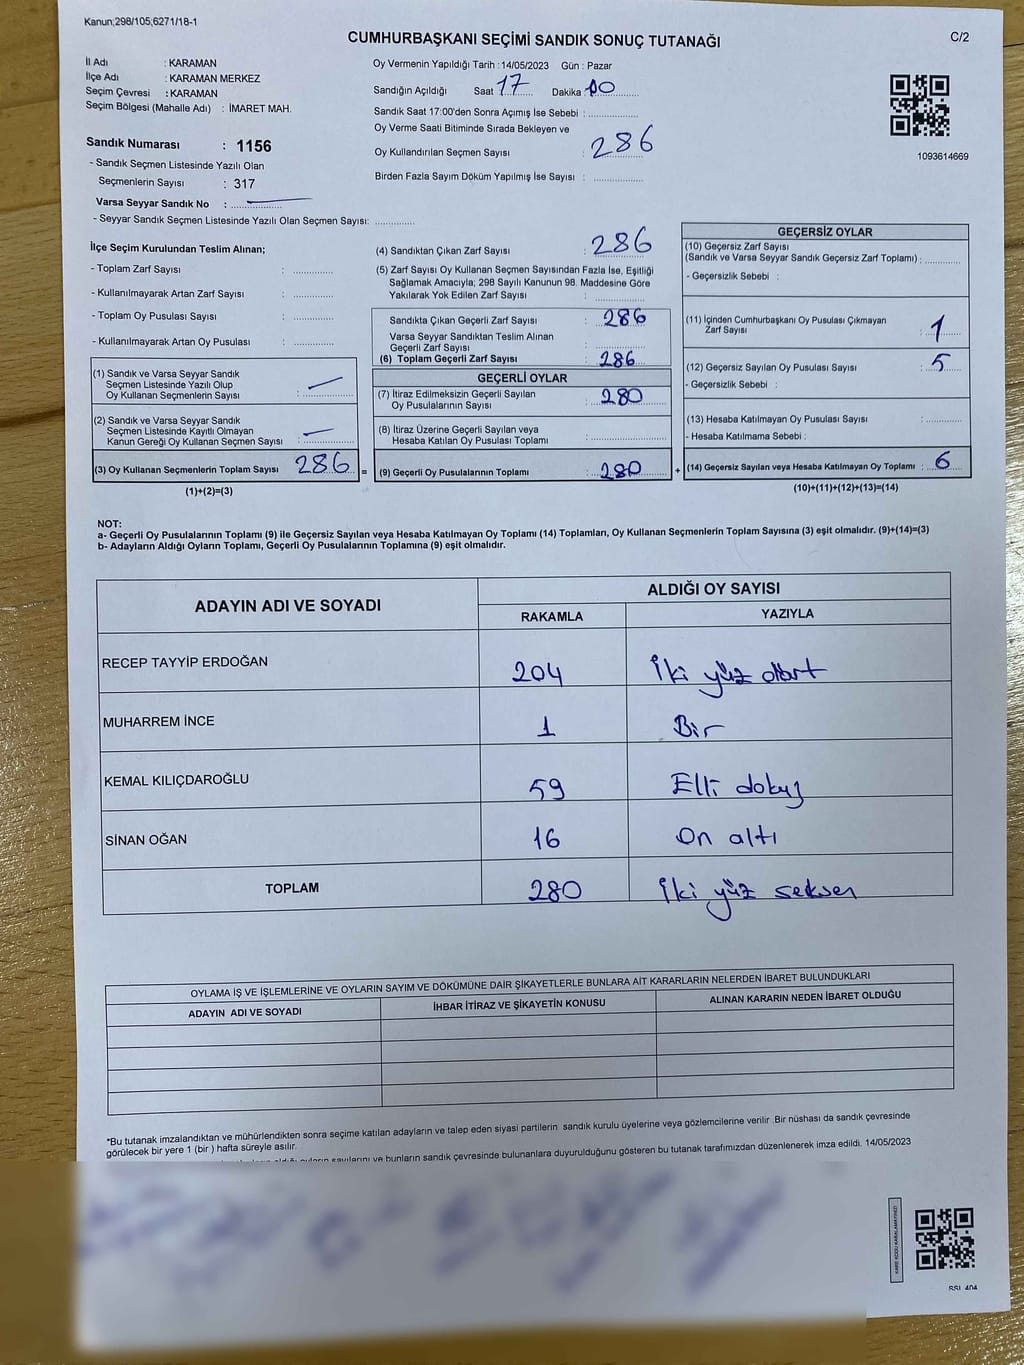 Kanun;298/105;6271/18-1
C/2
CUMHURBAŞKANI SEÇİMİ SANDIK SONUÇ TUTANAĞI
İl Adı : KARAMAN
İlçe Adı : KARAMAN MERKEZ
Seçim Çevresi : KARAMAN
Seçim Bölgesi (Mahalle Adı) : İMARET MAH.
Sandık Numarası : 1156
- Sandık Seçmen Listesinde Yazılı Olan
Seçmenlerin Sayısı : 317
Varsa Seyyar Sandık No :
- Seyyar Sandık Seçmen Listesinde Yazılı Olan Seçmen Sayısı:
Oy Vermenin Yapıldığı Tarih :14/05/2023 Gün : Pazar
Sandığın Açıldığı Saat 17 Dakika 00
Sandık Saat 17:00'den Sonra Açımış İse Sebebi :
Oy Verme Saati Bitiminde Sırada Bekleyen ve
Oy Kullandırılan Seçmen Sayısı : 286
Birden Fazla Sayım Döküm Yapılmış İse Sayısı :
1093614669
İlçe Seçim Kurulundan Teslim Alınan;
- Toplam Zarf Sayısı :
- Kullanılmayarak Artan Zarf Sayısı :
- Toplam Oy Pusulası Sayısı :
- Kullanılmayarak Artan Oy Pusulası :
(1) Sandık ve Varsa Seyyar Sandık
Seçmen Listesinde Yazılı Olup
Oy Kullanan Seçmenlerin Sayısı :
(2) Sandık ve Varsa Seyyar Sandık
Seçmen Listesinde Kayıtlı Olmayan
Kanun Gereği Oy Kullanan Seçmen Sayısı :
(3) Oy Kullanan Seçmenlerin Toplam Sayısı 286 =
(1)+(2)=(3)
(4) Sandıktan Çıkan Zarf Sayısı : 286
(5) Zarf Sayısı Oy Kullanan Seçmen Sayısından Fazla İse, Eşitliği
Sağlamak Amacıyla; 298 Sayılı Kanunun 98. Maddesine Göre
Yakılarak Yok Edilen Zarf Sayısı :
Sandıkta Çıkan Geçerli Zarf Sayısı : 286
Varsa Seyyar Sandıktan Teslim Alınan
Geçerli Zarf Sayısı :
(6) Toplam Geçerli Zarf Sayısı : 286
GEÇERLİ OYLAR
(7) İtiraz Edilmeksizin Geçerli Sayılan
Oy Pusulalarının Sayısı : 280
(8) İtiraz Üzerine Geçerli Sayılan veya
Hesaba Katılan Oy Pusulası Toplamı :
(9) Geçerli Oy Pusulalarının Toplamı : 280 +
GEÇERSİZ OYLAR
(10) Geçersiz Zarf Sayısı
(Sandık ve Varsa Seyyar Sandık Geçersiz Zarf Toplamı) :
- Geçersizlik Sebebi :
(11) İçinden Cumhurbaşkanı Oy Pusulası Çıkmayan
Zarf Sayısı : 1
(12) Geçersiz Sayılan Oy Pusulası Sayısı : 5
- Geçersizlik Sebebi :
(13) Hesaba Katılmayan Oy Pusulası Sayısı :
- Hesaba Katılmama Sebebi :
(14) Geçersiz Sayılan veya Hesaba Katılmayan Oy Toplamı : 6
(10)+(11)+(12)+(13)=(14)
NOT:
a- Geçerli Oy Pusulalarının Toplamı (9) ile Geçersiz Sayılan veya Hesaba Katılmayan Oy Toplamı (14) Toplamları, Oy Kullanan Seçmenlerin Toplam Sayısına (3) eşit olmalıdır. (9)+(14)=(3)
b- Adayların Aldığı Oyların Toplamı, Geçerli Oy Pusulalarının Toplamına (9) eşit olmalıdır.
ADAYIN ADI VE SOYADI ALDIĞI OY SAYISI
RAKAMLA YAZIYLA
RECEP TAYYİP ERDOĞAN 204 İki yüz dört
MUHARREM İNCE 1 Bir
KEMAL KILIÇDAROĞLU 59 Elli dokuz
SİNAN OĞAN 16 On altı
TOPLAM 280 İki yüz seksen
OYLAMA İŞ VE İŞLEMLERİNE VE OYLARIN SAYIM VE DÖKÜMÜNE DAİR ŞİKAYETLERLE BUNLARA AİT KARARLARIN NELERDEN İBARET BULUNDUKLARI
ADAYIN ADI VE SOYADI İHBAR İTİRAZ VE ŞİKAYETİN KONUSU ALINAN KARARIN NEDEN İBARET OLDUĞU
*Bu tutanak imzalandıktan ve mühürlendikten sonra seçime katılan adayların ve talep eden siyasi partilerin sandık kurulu üyelerine veya gözlemcilerine verilir .Bir nüshası da sandık çevresinde
görülecek bir yere 1 (bir ) hafta süreyle asılır.
oyların sayılarını ve bunların sandık çevresinde bulunanlara duyurulduğunu gösteren bu tutanak tarafımızdan düzenlenerek imza edildi. 14/05/2023